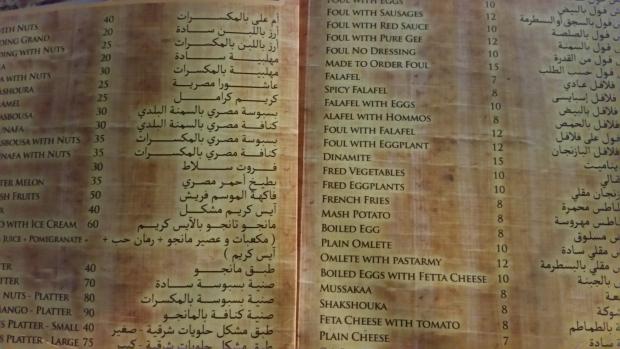 NUTS 40 أم على بالمكسرات
DING GRAND 20 أرز باللبن سادة
DING WITH NUTS 30 أرز باللبن بالمكسرات
20 مهلبية سادة
A WITH NUTS 30 مهلبية بالمكسرات
ASHOURA 25 عاشورا مصرية
AMEL 25 كريم كرامل
ASBOUSA 30 بسبوسة مصري بالسمنة البلدي
UNAFA 30 كنافة مصري بالسمنة البلدي
ASBOUSA WITH NUTS 35 بسبوسة مصري بالمكسرات
UNAFA WITH NUTS 35 كنافة مصري بالمكسرات
30 فروت سلاط
TER MELON 35 بطيخ أحمر مصري
SH FRUITS 50 فاكهة الموسم فريش
40 آيس كريم مشكل
O WITH ICE CREAM 60 مانجو تانجو بالآيس كريم
JUICE + POMIGRANATE + ( مكعبات و عصير مانجو + رمان حب +
آيس كريم )
TER 40 طبق مانجو
TTER 70 صنية بسبوسة سادة
NUTS - PLATTER 80 صنية بسبوسة بالمكسرات
MANGO - PLATTER 90 صنية كنافة بالمانجو
S PLATTER - SMALL 40 طبق مشكل حلويات شرقية - صغير
S PLATTER - LARGE 75 طبق مشكل حلويات شرقية - كبير
FOUL WITH EGGS 10 فول بالبيض
FOUL WITH SAUSAGES 12 فول بالسجق أو البسطرمة
FOUL WITH RED SAUCE 10 فول بالصلصة
FOUL WITH PURE GEF 12 فول بالسمنة
FOUL NO DRESSING 10 فول من القدرة
MADE TO ORDER FOUL 15 فول حسب الطلب
FALAFEL 7 فلافل عادي
SPICY FALAFEL 8 فلافل إسبايسي
FALAFEL WITH EGGS 10 فلافل بالبيض
ALAFEL WITH HOMMOS 8 فلافل بالحمص
FOUL WITH FALAFEL 12 فول على فلافل
FOUL WITH EGGPLANT 12 فول بالباذنجان
DINAMITE 15
FRED VEGETABLES 10
FRED EGGPLANTS 10 مقلي
FRENCH FRIES 8 محمرة
MASH POTATO 8 مهروسة
BOILED EGG 8 مسلوق
PLAIN OMLETE 8 مقلي سادة
OMLETE WITH PASTARMY 12 مقلي بالبسطرمة
BOILED EGGS WITH FETTA CHEESE 10 بالجبنة
MUSSAKAA 8
SHAKSHOUKA 8
FETA CHEESE WITH TOMATO 8 بالطماطم
PLAIN CHEESE 7 سادة